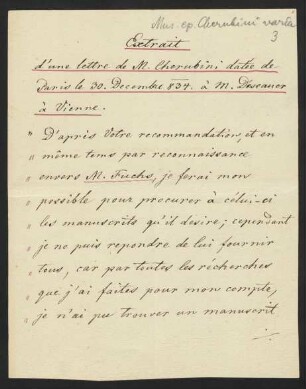 Mus. ep. Cherubini varia
3
Extrait
d'une lettre de M. Cherubini datée de
Paris le 30. Decembre 1834. à M. Dessauer
à Vienne.
" D'après Votre recommandation, et en
" même tems par reconnaissance
" envers M. Fuchs, je ferai mon
" possible pour procurer à celui-ci
" les manuscrits qu'il desire; cependant
" je ne puis repondre de lui fournir
" tous, car par toutes les récherches
" que j'ai faites pour mon compte,
" je n'ai pu trouver un manuscrit